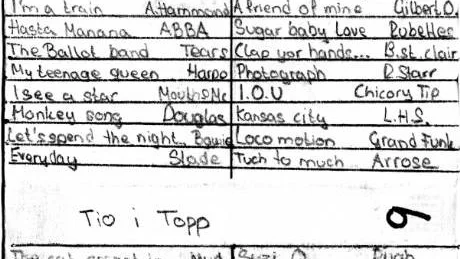 I'm a train A.Hammond A friend of mine Gilbert O.
Hasta Manana ABBA Sugar baby Love Rubettes
The Ballot band Tears Clap yor hands... B.st.clair
My teenage queen Harpo Photograph R Starr
I see a star Mouth&Mc I.O.U Chicory Tip
Monkey song Douglas Kansas city L.H.S.
Let's spend the night. Bowie Loco motion Grand Funk
Everyday Slade Tuch to much Arrose
Tio i Topp 9
Suzi Q